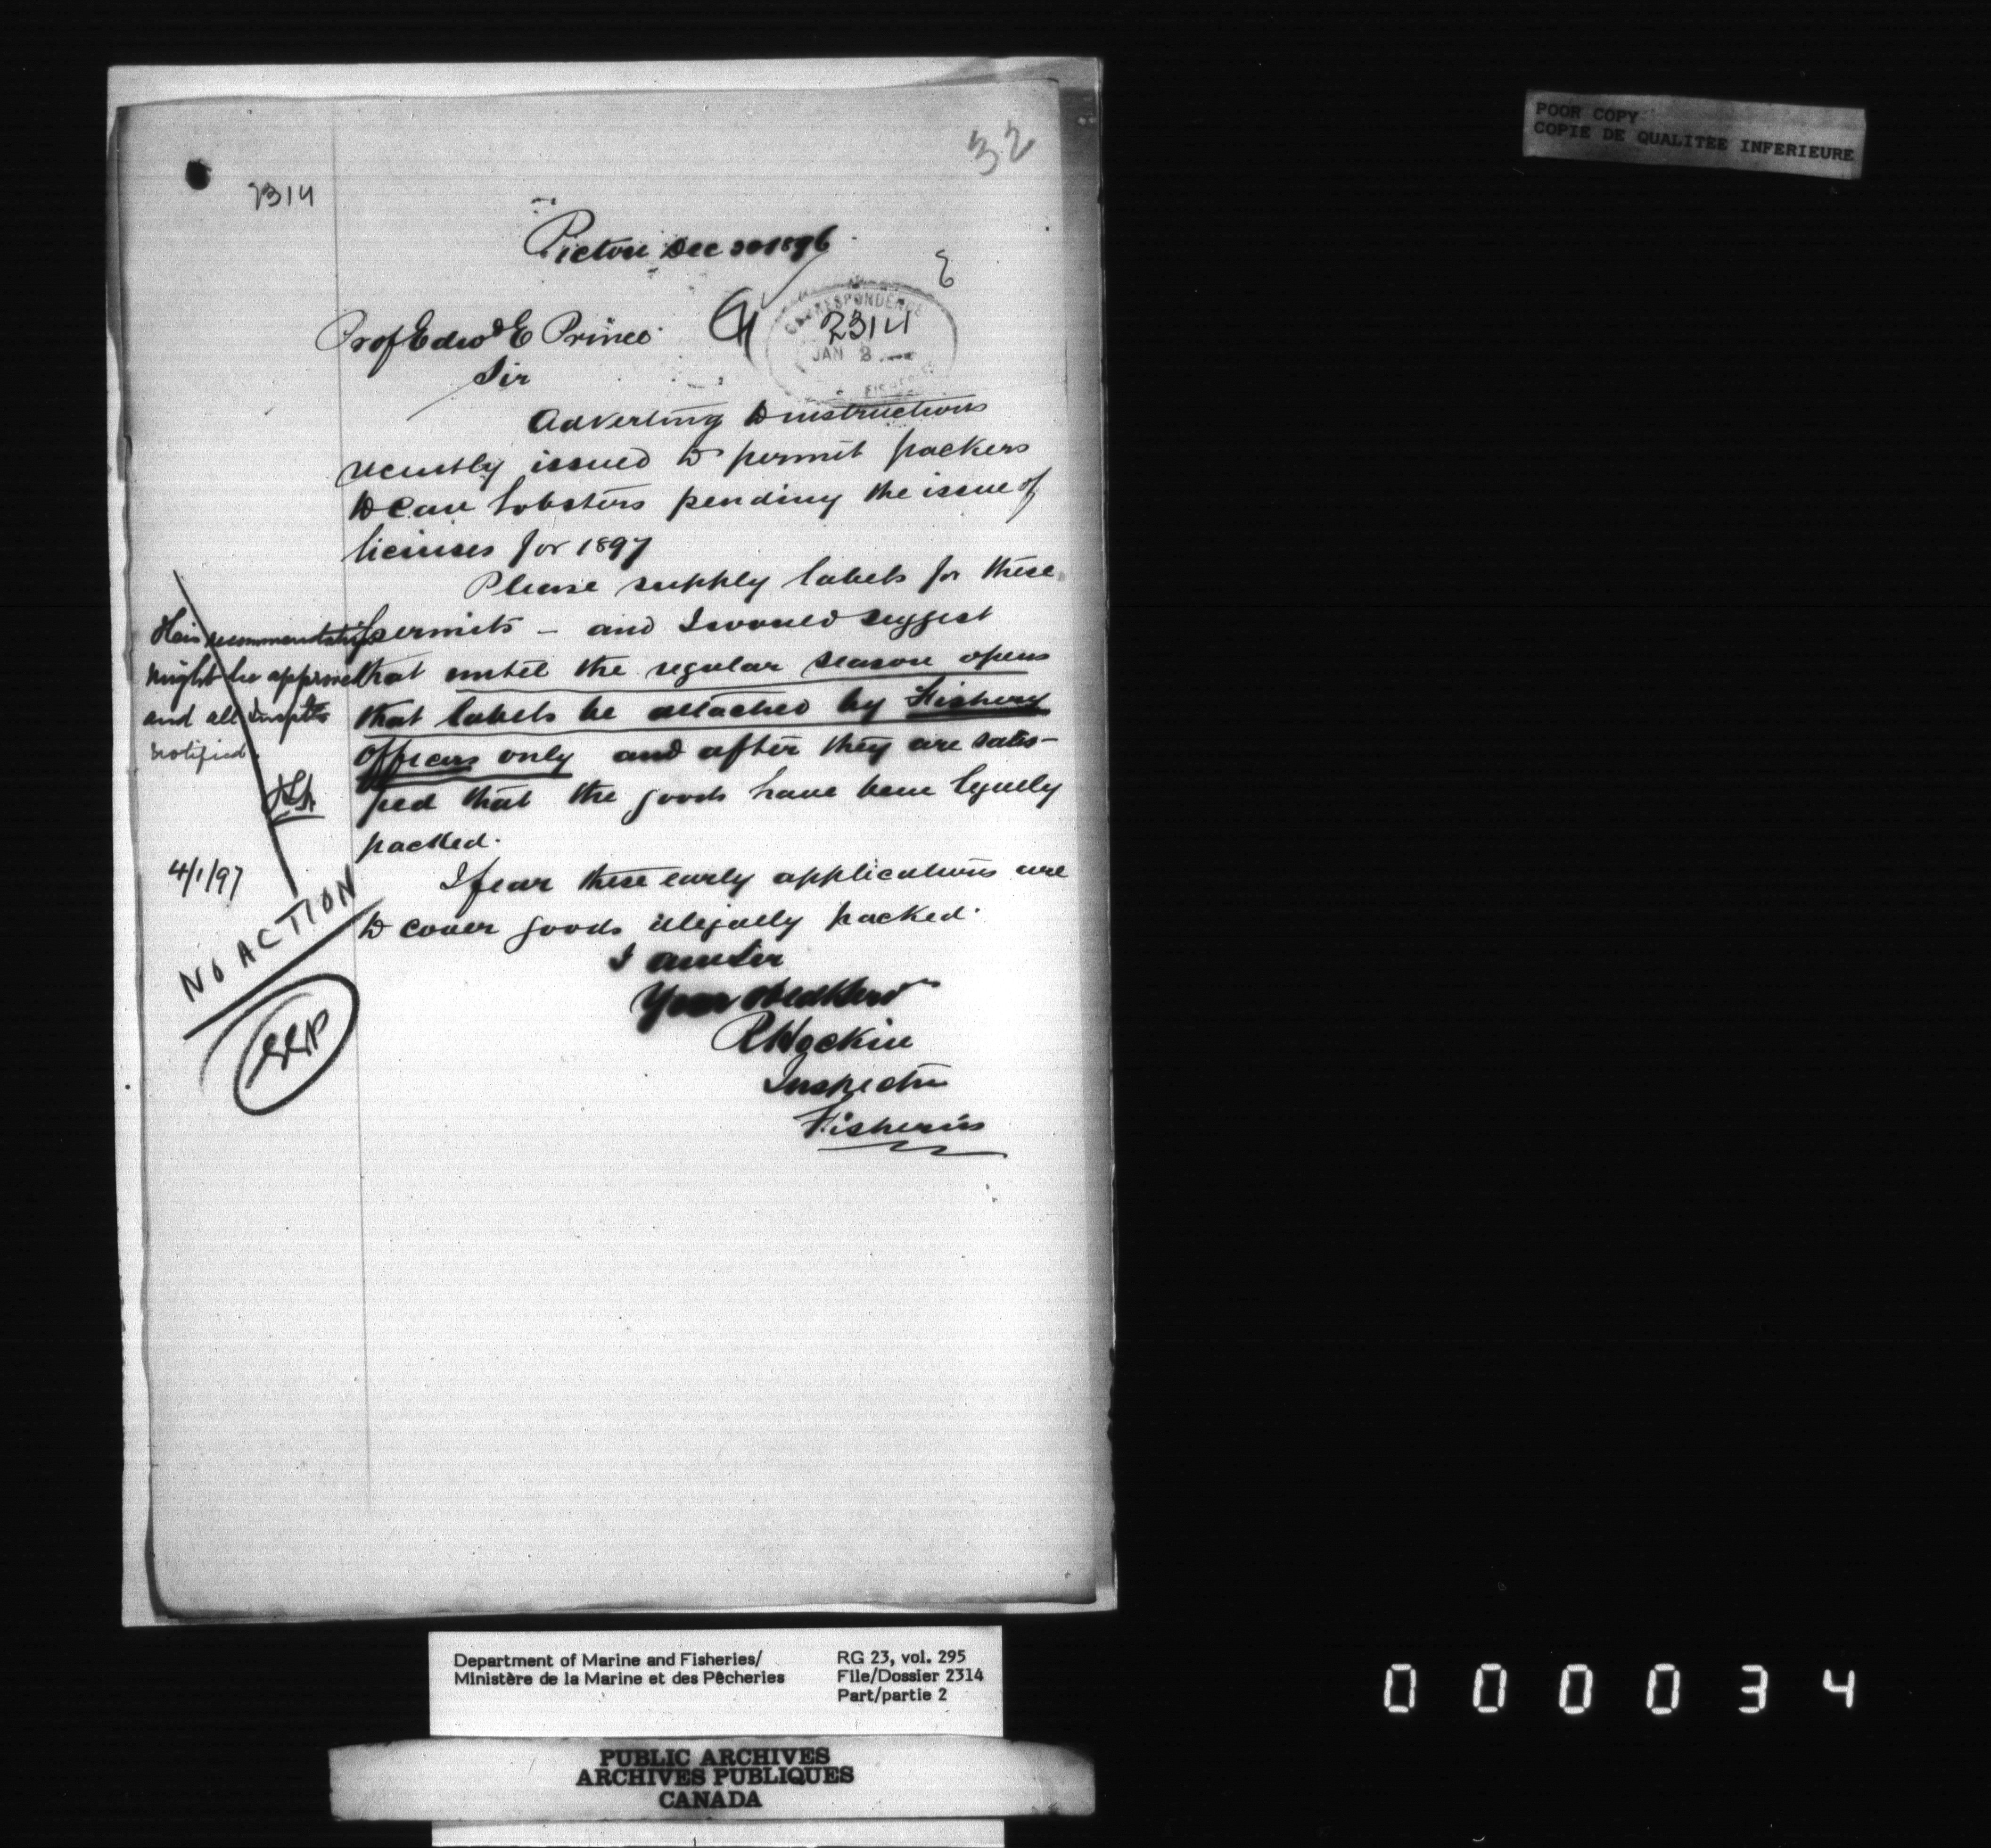 32
2314
Pictou Dec 30 1896
POOR COPY
COPIE DE QUALITEE INFERIEURE
CORRESPONDENCE
2314
JAN 2
FISHERIES
Prof Edwd E Prince
Sir
Adverting to instructions
recently issued to permit packers
to can lobsters pending the issue of
licenses for 1897
Please supply labels for these
permits – and I would suggest
that until the regular season opens
that labels be attached by Fishery
Officers only and after they are satis-
fied that the goods have been legally
packed.
I fear these early applications are
to cover goods illegally packed.
I am Sir
Your Obed Serv
R Hockin
Inspector
Fisheries
This recommendation
might be approved
and all Insptrs
notified.
4/1/97
NO ACTION
EEP
Department of Marine and Fisheries/
Ministère de la Marine et des Pêcheries
RG 23, vol. 295
File/Dossier 2314
Part/partie 2
PUBLIC ARCHIVES
ARCHIVES PUBLIQUES
CANADA
000034